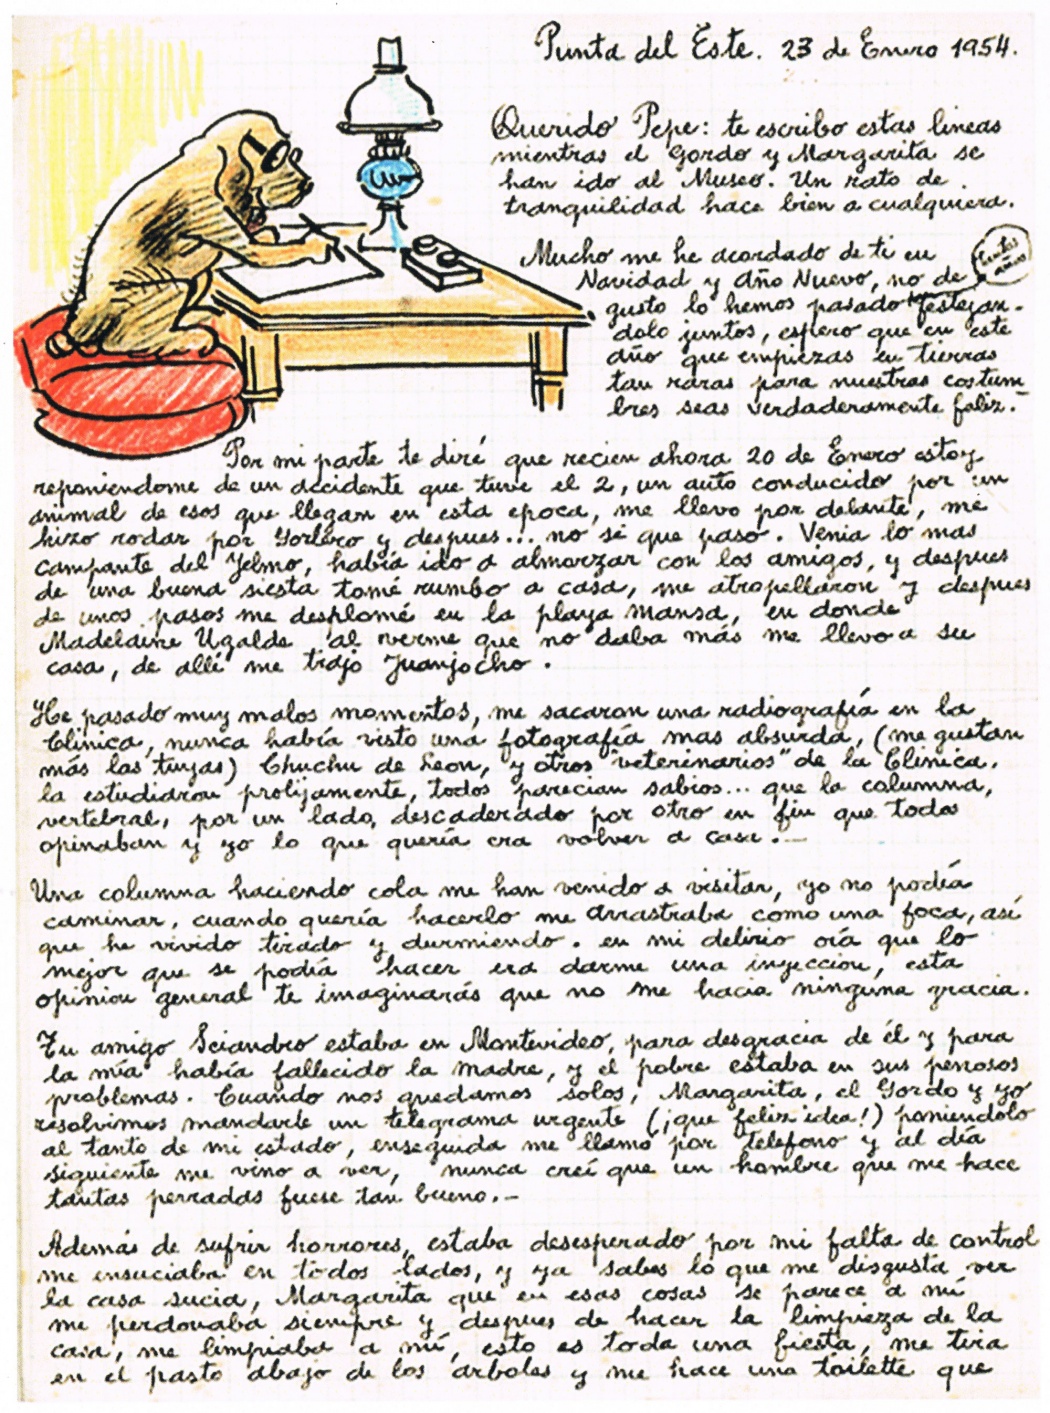 Punta del Este. 23 de Enero 1954.
Querido Pepe: te escribo estas lineas
mientras el Gordo y Margarita se
han ido al Museo. Un rato de
tranquilidad hace bien a cualquiera.
Mucho me he acordado de ti en
Navidad y Año Nuevo, no de
gusto lo hemos pasado festejan-
dolo juntos, espero que en este
año que empiezas en tierras
tan raras para nuestras costum
bres seas verdaderamente feliz.-
Por mi parte te diré que recien ahora 20 de Enero estoy
reponiendome de un accidente que tuve el 2, un auto conducido por un
animal de esos que llegan en esta epoca, me llevo por delante, me
hizo rodar por Gorlero y despues... no sé que paso. Venia lo mas
campante del Yelmo, había ido a almorzar con los amigos, y despues
de una buena siesta tomé rumbo a casa, me atropellaron y despues
de unos pasos me desplomé en la playa mansa, en donde
Madelaine Ugalde al verme que no daba más me llevo a su
casa, de allí me trajo Juanjocho.
He pasado muy malos momentos, me sacaron una radiografía en la
Clinica, nunca había visto una fotografía mas absurda, (me gustan
más las tuyas) Chuchu de Leon, "y otros veterinarios" de la Clinica,
la estudiaron prolijamente, todos parecian sabios... que la columna,
vertebral, por un lado, descaderado por otro en fin que todos
opinaban y yo lo que quería era volver a casa.-
Una columna haciendo cola me han venido a visitar, yo no podía
caminar, cuando quería hacerlo me arrastraba como una foca, así
que he vivido tirado y durmiendo. en mi delirio oía que lo
mejor que se podía hacer era darme una inyeccion, esta
opinion general te imaginarás que no me hacia ninguna gracia.
Tu amigo Sciandro estaba en Montevideo, para desgracia de él y para
la mía había fallecido la madre, y el pobre estaba en sus penosos
problemas. Cuando nos quedamos solos, Margarita, el Gordo y yo
resolvimos mandarle un telegrama urgente (¡que feliz idea!) poniendolo
al tanto de mi estado, enseguida me llamo por telefono y al día
siguiente me vino a ver, nunca creí que un hombre que me hace
tantas perradas fuese tan bueno.-
Además de sufrir horrores, estaba desesperado por mi falta de control
me ensuciaba en todos lados, y ya sabes lo que me disgusta ver
la casa sucia, Margarita que en esas cosas se parece a mí
me perdonaba siempre y despues de hacer la limpieza de la
casa, me limpiaba a mí, esto es toda una fiesta, me tira
en el pasto abajo de los arboles y me hace una toilette que